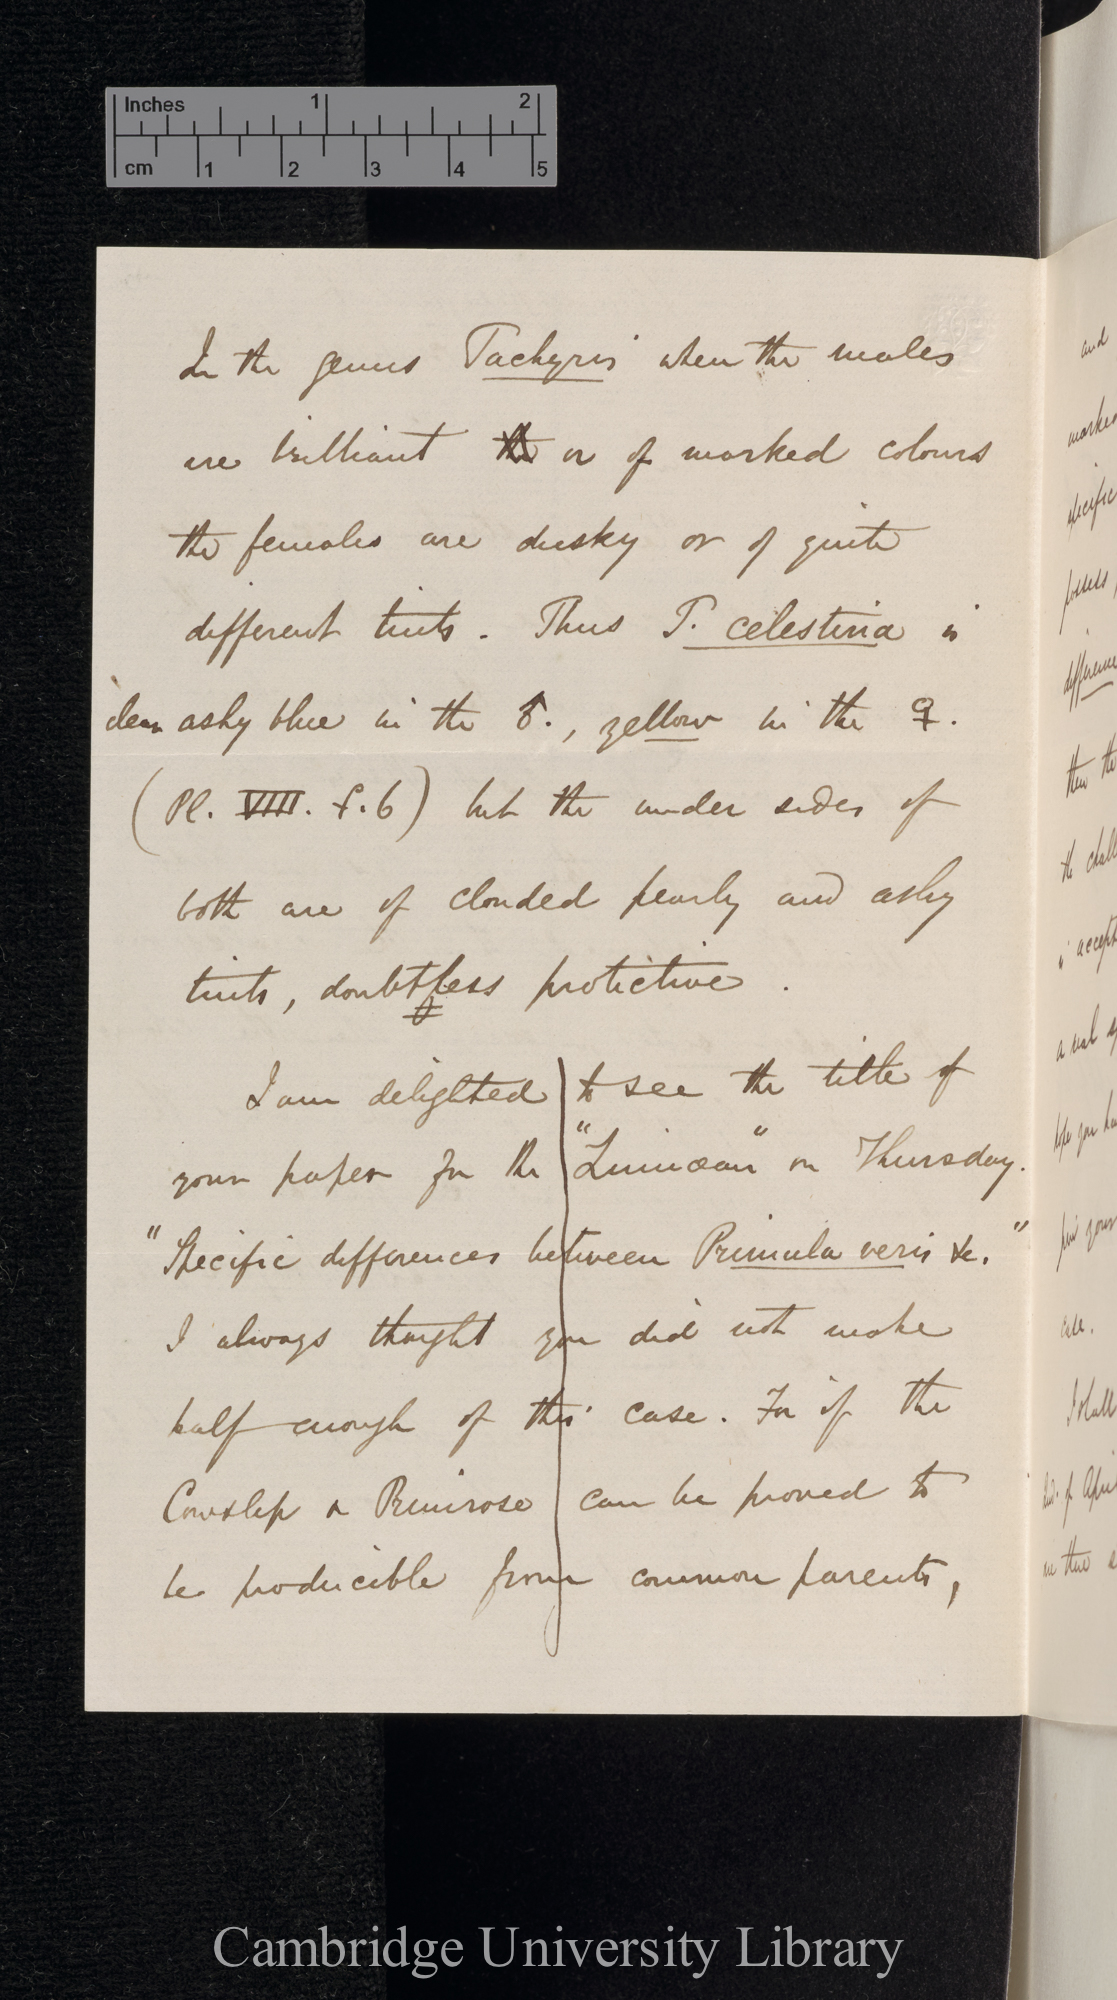 Inches 1 2
cm 1 2 3 4 5
In the genus Tachyris when the males
are brilliant or of marked colours
the females are dusky or of quite
different tints. Thus T. celestina is
clean ashy blue in the ♂., yellow in the ♀.
(Pl. VIIII. f. 6) but the under sides of
both are of clouded pearly and ashy
tints, doubtless protective.
I am delighted to see the title of
your paper for the "Linnæan" on Thursday.
"Specific differences between Primula veris &c."
I always thought you did not make
half enough of this case. For if the
Cowslip & Primrose can be proved to
be producible from common parents,
and
marked
specific
possess,
difference
then the
the chall
is accept
a real s
hope you ha
case.
I shall
of Apri
Cambridge University Library